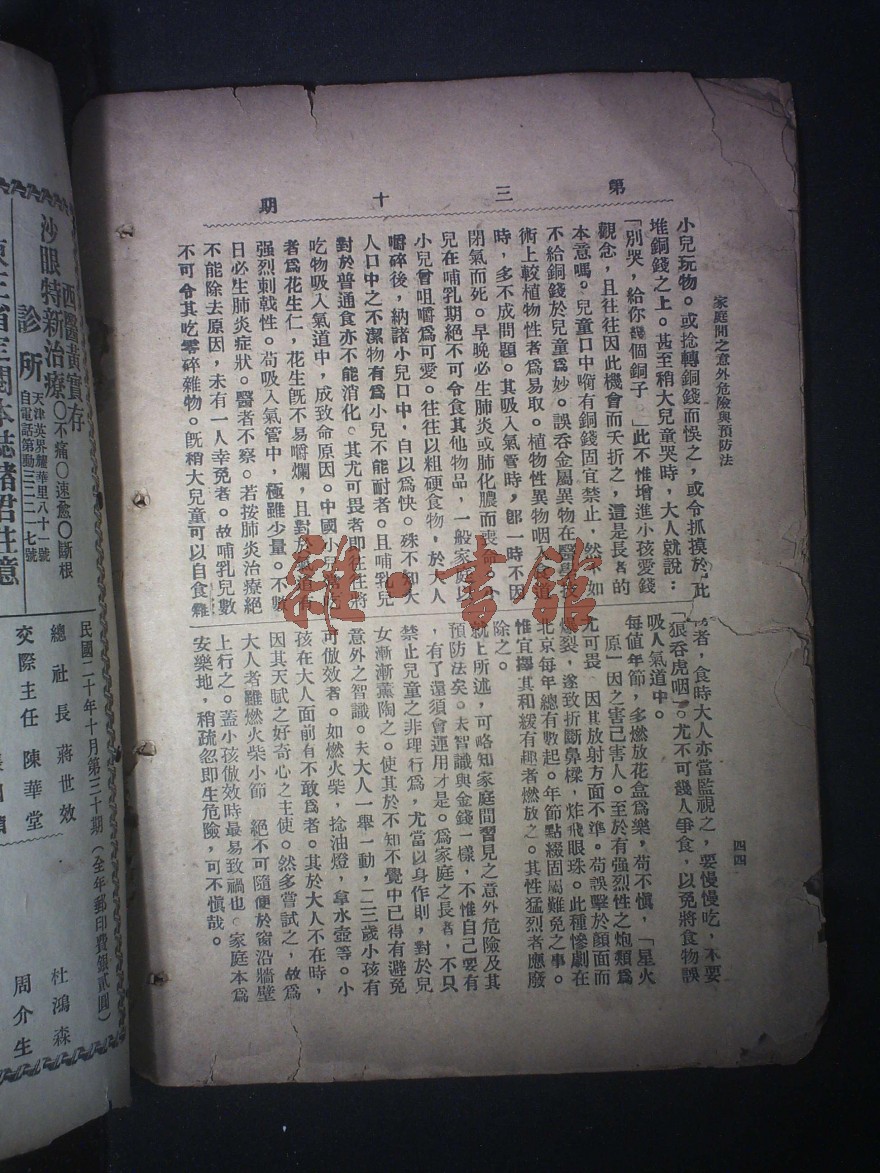 第三十期
家庭間之意外危險與預防法
四四
小兒玩物。或捻轉銅錢而悞之，或令抓摸於此
堆銅錢之上。甚至稍大兒童哭時，大人就說：
「別哭，給你幾個銅子　」此不惟增進小孩愛錢
觀念，且往往因此機會而夭折之，這是長者的
本意嗎。兒童口中啣有銅錢固宜禁止，然
不給銅錢於兒童爲妙。誤吞金屬異物在醫學技
術上較植物性者爲易取。植物性異物咽入食道
時，多不成問題。其吸入氣管時，卽一時不因
閉氣而死。早晚必生肺炎或肺化膿而喪命。
兒在哺乳期絕不可令食其他物品，一般家庭以
小兒曾咀嚼爲可愛。往往以粗硬食物，於大人
嚼碎後，納諸小兒口中，自以爲快。殊不知大
人口中之不潔物有爲小兒不能耐者。且哺乳兒
對於普通食亦不能消化。其尤可畏者卽往往將
吃物吸入氣道中，成致命原因。中國小兒
者爲花生仁，花生旣不易嚼爛，且對於氣道有
强烈刺戟性。苟吸入氣管中，極雖少量。不數
日必生肺炎症狀。醫者不察。若按肺炎治療絕
不能除去原因，未有一人幸免者。故哺乳兒數
不可令其吃零碎雜物。旣稍大兒童可以自食雜
者，食時大人亦當監視之，要慢慢吃，不要
「狼吞虎咽」。尤不可幾人爭食，以免將食物誤
吸人氣道中。
每值年節，多燃放花盒爲樂，苟不愼，「星火
原」因之害己害人。至於有强烈性之炮類爲
尤可畏　因其放射方面不準。苟誤擊於顏面而
爆裂，遂致折斷鼻樑，炸飛眼珠。此種慘劇在
北京每年總有數起。年節點綴固屬難免之事。
惟宜擇其和緩有趣者燃放之。其性猛烈者應廢
除之。
就上所述，可略知家庭間習見之意外危險及其
預防法矣。夫智識與金錢一樣，不惟自己要有
，有了還須會運用才是。爲家庭之長者，不只
禁止兒童之非理行爲，尤當以身作則，對於兒
女漸漸薰陶之。使其於不知不覺中已得有避免
意外之智識。夫大人一舉一動，二三歲小孩有
可倣效者。如燃火柴，捻油燈，拿水壺等。小
孩在大人面前有不敢爲者。其於大人不在時，
因其天賦之好奇心之主使。然多嘗試之，故爲
大人者雖燃火柴小節　絕不可隨便於窗沿牆壁
上行之。蓋小孩倣效時最易致禍也。家庭本爲
安樂地，稍疏忽卽生危險，可不愼哉。
西醫黃實存
沙眼特新治療〇不痛〇速愈〇斷根
診所
天津英界耀華里八十一號
自電話第動三二二一七號
東三省定閱本誌諸君注意
民國二十年十月第三十期（全年郵印費銀貳圓）
總社長　蔣世效　杜鴻森
交際主任　陳華堂　周介生
雜·書館